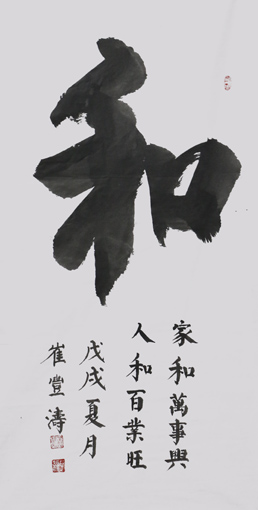 和
家和萬事興
人和百業旺
戊戌夏月
崔豐濤